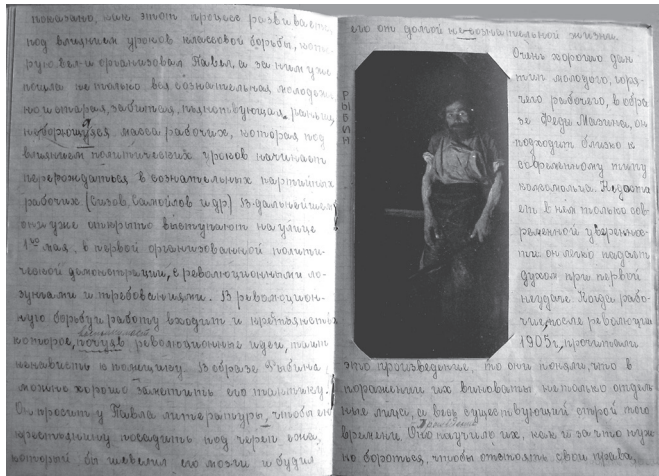 показано, как этот процесс развивается
под влиянием уроков классовой борьбы, кото-
рую вел и организовал Павел, а за ним уже
пошла не только вся сознательная молодежь
но и старая, забитая, пьянствующая, раньше
не борющаяся масса рабочих, которая под
влиянием политических уроков начинает
перерождаться в сознательных партийных
рабочих (Сизов, Самойлов и др) В дальнейшем
они уже открыто выступают на улице
1го мая, в первой организованной полити-
ческой демонстрации, с революционными ло-
зунгами и требованиями. В революцион-
ную борьбу и работу входит и крестьянство
которое, почуяв революционные идеи, таит
ненависть к помещику. В образе Рыбина
можно хорошо заметить его тактику.
Он просит у Павла литературы, чтобы ею
крестьянину посадить под череп ежа,
который бы шевелил его мозги и будил
его от долгой не-сознательной жизни.
РЫБИН
Очень хорошо дан
тип молодого, горя-
чего рабочего, в обра-
зе Феди Мазина, он
подходит близко к
современному типу
комсомольца. Недоста
ет в нем только сов-
ременной увереннос-
ти он легко падает
духом при первой
неудаче. Когда рабо-
чие, после революции
1905 г., прочитали
это произведение, то они поняли, что в
поражении их виноваты не только отдель-
ные лица, а весь существующий строй того
времени. Оно научило их, как и за что нуж-
но бороться, чтобы отстоять свои права,